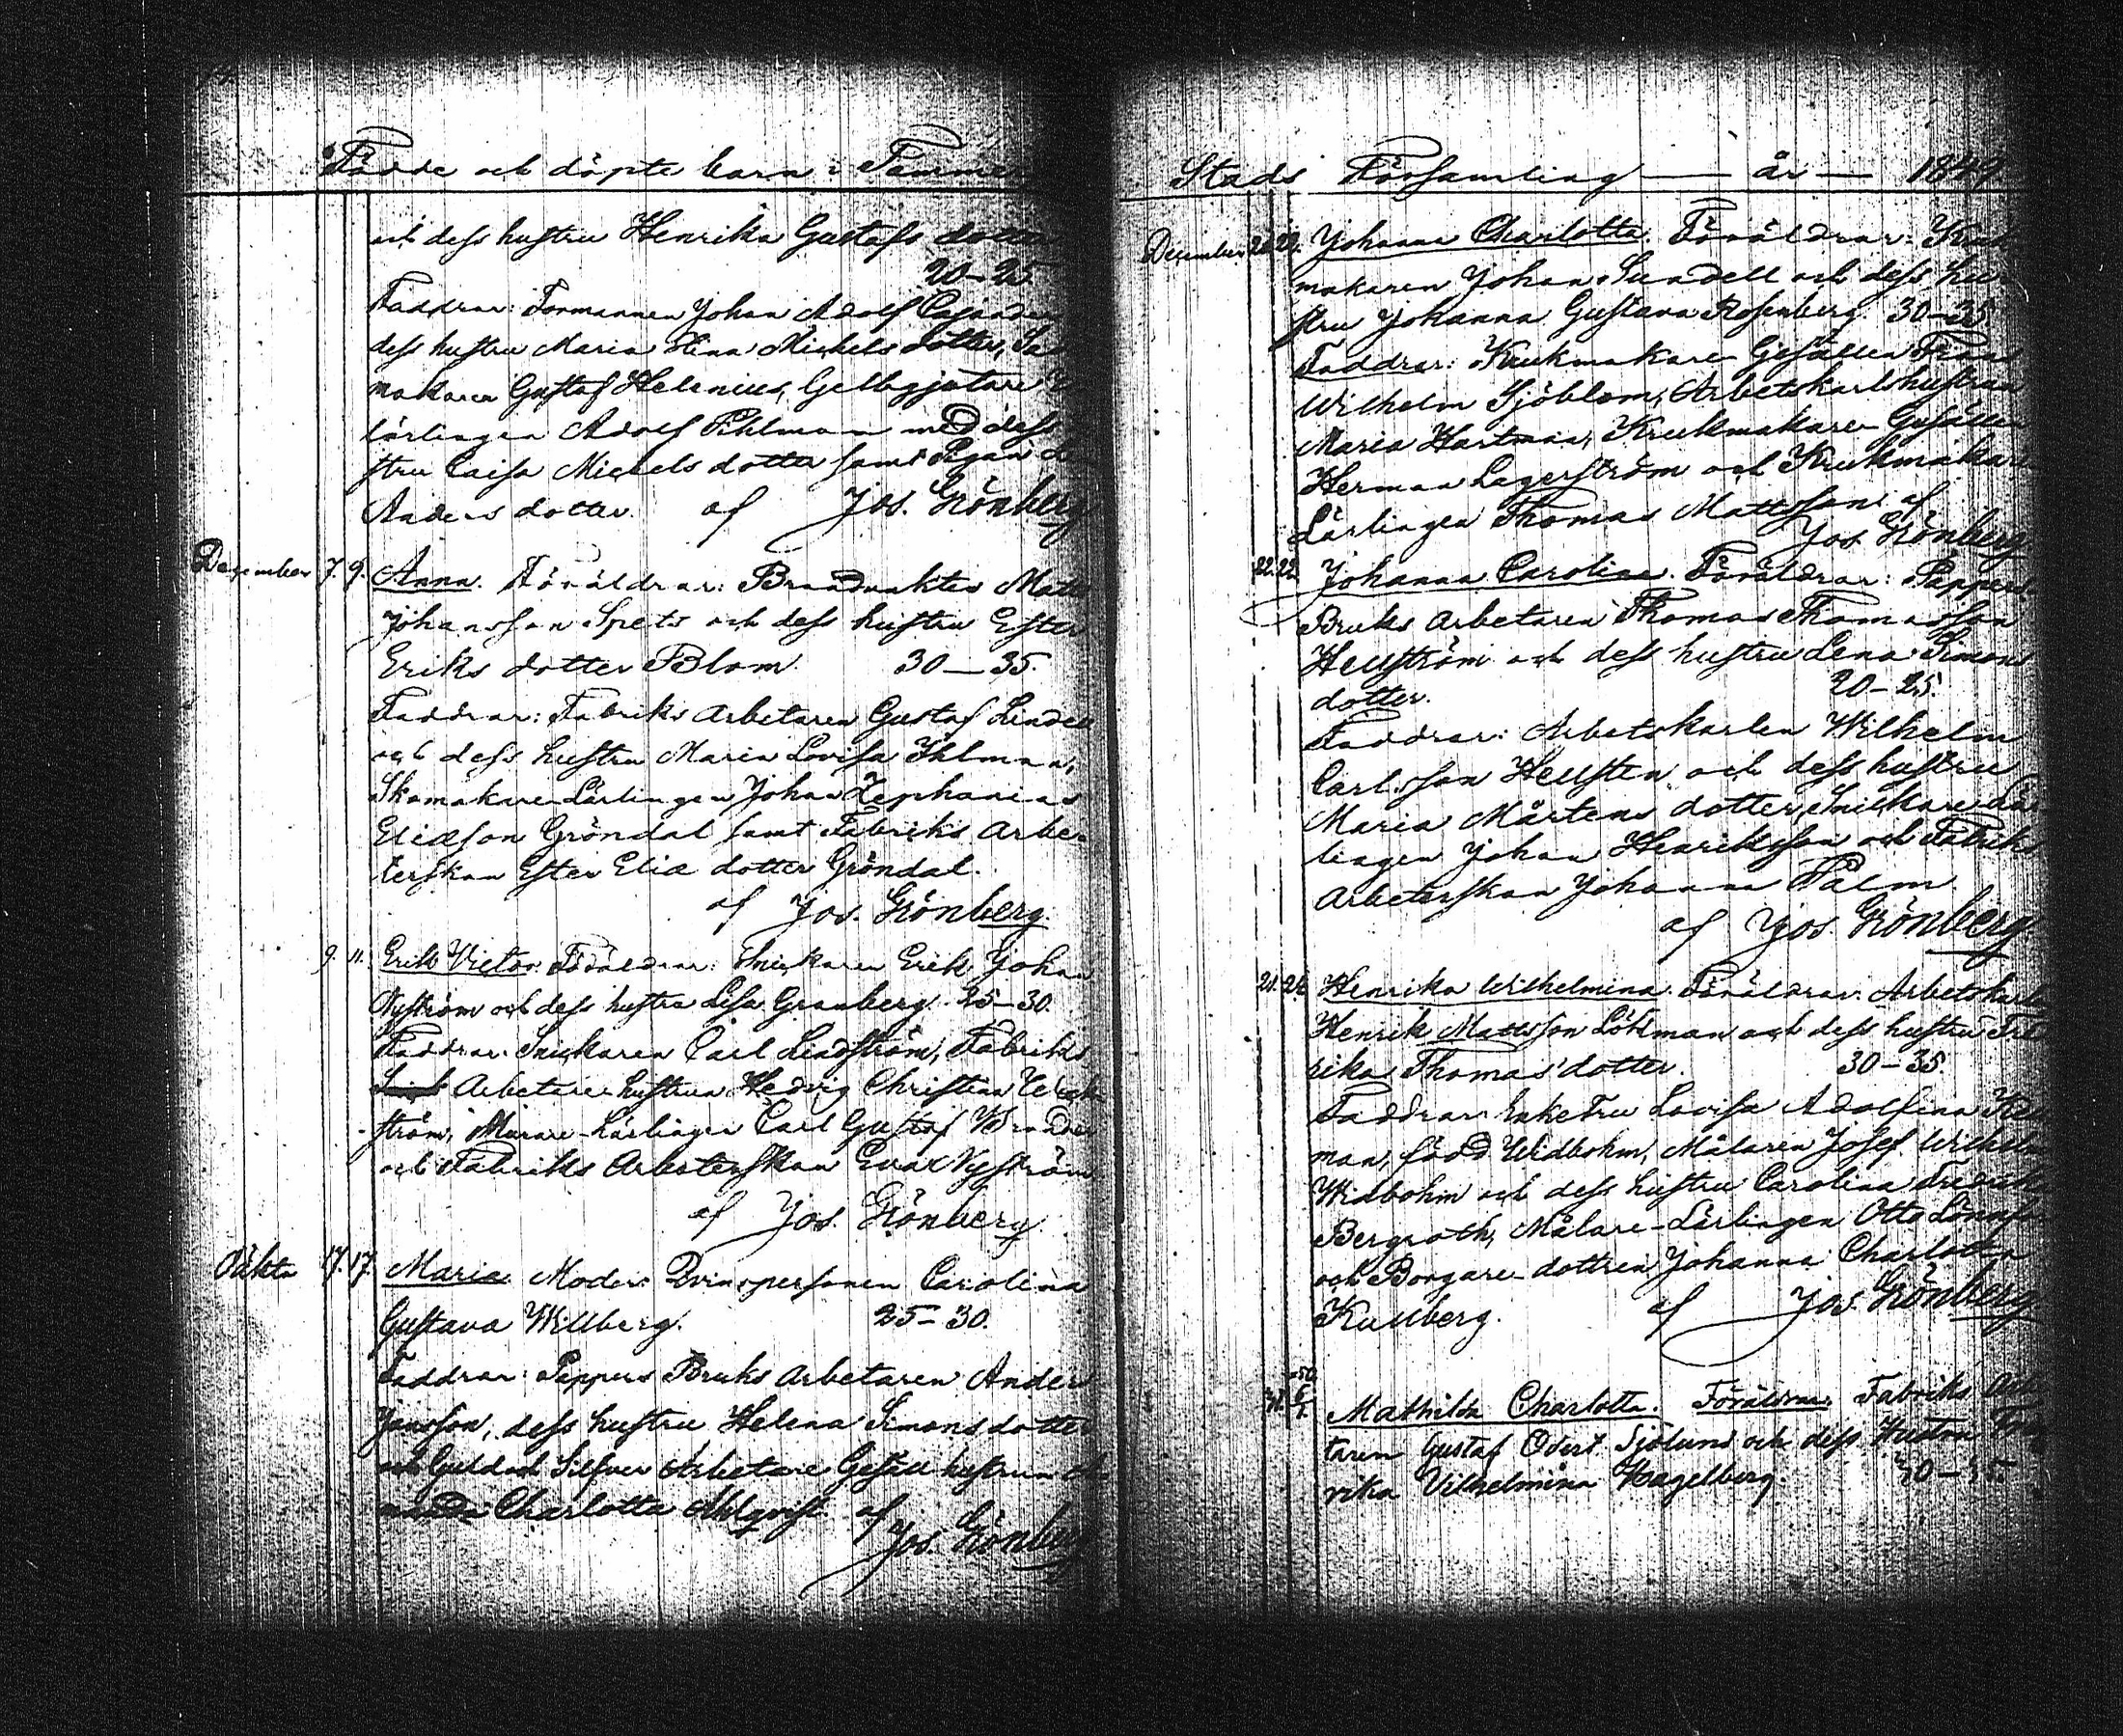 Födde och döpte barn i Tammer
och dess hustru Henrika Gustafs dotter
20–25.
Faddrar: Formannen Johan Adolf Cajander
dess hustru Maria Stina Michels dotter,
makaren Gustaf Helenius, Gelbgjutare
lärlingen Adolf Pihlman med dess
stru Caisa Michels dotter samt Pigan
Anders dotter. af Jos. Grönberg
December 7. 9. Anna. Föräldrar: Brandvakten Matts
Johansson Spets och dess hustru Ester
Eriks dotter Blom. 30–35.
Faddrar: Fabriks Arbetaren Gustaf Lindell
och dess hustru Maria Lovisa Ihlman,
Skomakare-Lärlingen Johan Zephanias
Eliæson Gröndal samt Fabriks Arbe-
terskan Ester Eliæ dotter Gröndal.
af Jos. Grönberg.
9. 11. Erik Victor. Föräldrar: Snickaren Erik Johan
Nyström och dess hustru Lisa Granberg. 25–30.
Faddrar: Snickaren Carl Lindström, Fabriks
Arbetare hustrun Hedvig Christina
ström, Murare-Lärlingen Carl Gustaf
och Fabriks Arbeterskan Eva Nyström
af Jos. Grönberg.
Oäkta 17. 17. Maria. Moder: Qvinspersonen Carolina
Gustava Willberg. 25–30.
Faddrar: Pappers Bruks Arbetaren Anders
Jansson, dess hustru Helena Simons dotter
och Guld och Silfver Arbetare Gesäll hustrun
Charlotta Ahlqvist. af
Jos. Grönberg
Stads Församling — år — 1849
December 20. 22. Johanna Charlotta. Föräldrar: Kruk
makaren Johan Sundell och dess hu-
stru Johanna Gustava Rosenberg. 30–35
Faddrar: Krukmakare Gesällen Frans
Wilhelm Sjöblom, Arbetskarlshustrun
Maria Hartman, Krukmakare Gesällen
Herman Lagerström och Krukmakare
Lärlingen Thomas Mattsson. af
Jos. Grönberg
22. 22. Johanna Carolina. Föräldrar: Pappers-
Bruks Arbetaren Thomas Thomasson
Hellström och dess hustru Lena Simons
dotter. 20–25.
Faddrar: Arbetskarlen Wilhelm
Carlsson Hellsten och dess hustru
Maria Mårtens dotter, Snickare-Lär
lingen Johan Henriksson och Fabriks
Arbeterskan Johanna Palm.
af Jos. Grönberg
21. 26. Henrika Wilhelmina. Föräldrar: Arbetskarlen
Henrik Mattsson Lökman och dess hustru Fred
rika Thomas dotter. 30–35.
Faddrar: Enkefru Lovisa Adolfina
man, född Widbohm, Målaren Josef Wilhelm
Widbohm och dess hustru Carolina Fredrika
Bergroth, Målare-Lärlingen Otto
och Borgare-dottren Johanna Charlotta
Kullberg. af Jos. Grönberg
Mathilda Charlotta. Föräldrar: Fabriks Arb
taren Gustaf Odert Sjölund och dess Hustru
rika Vilhelmina Hagelberg. 30–35.